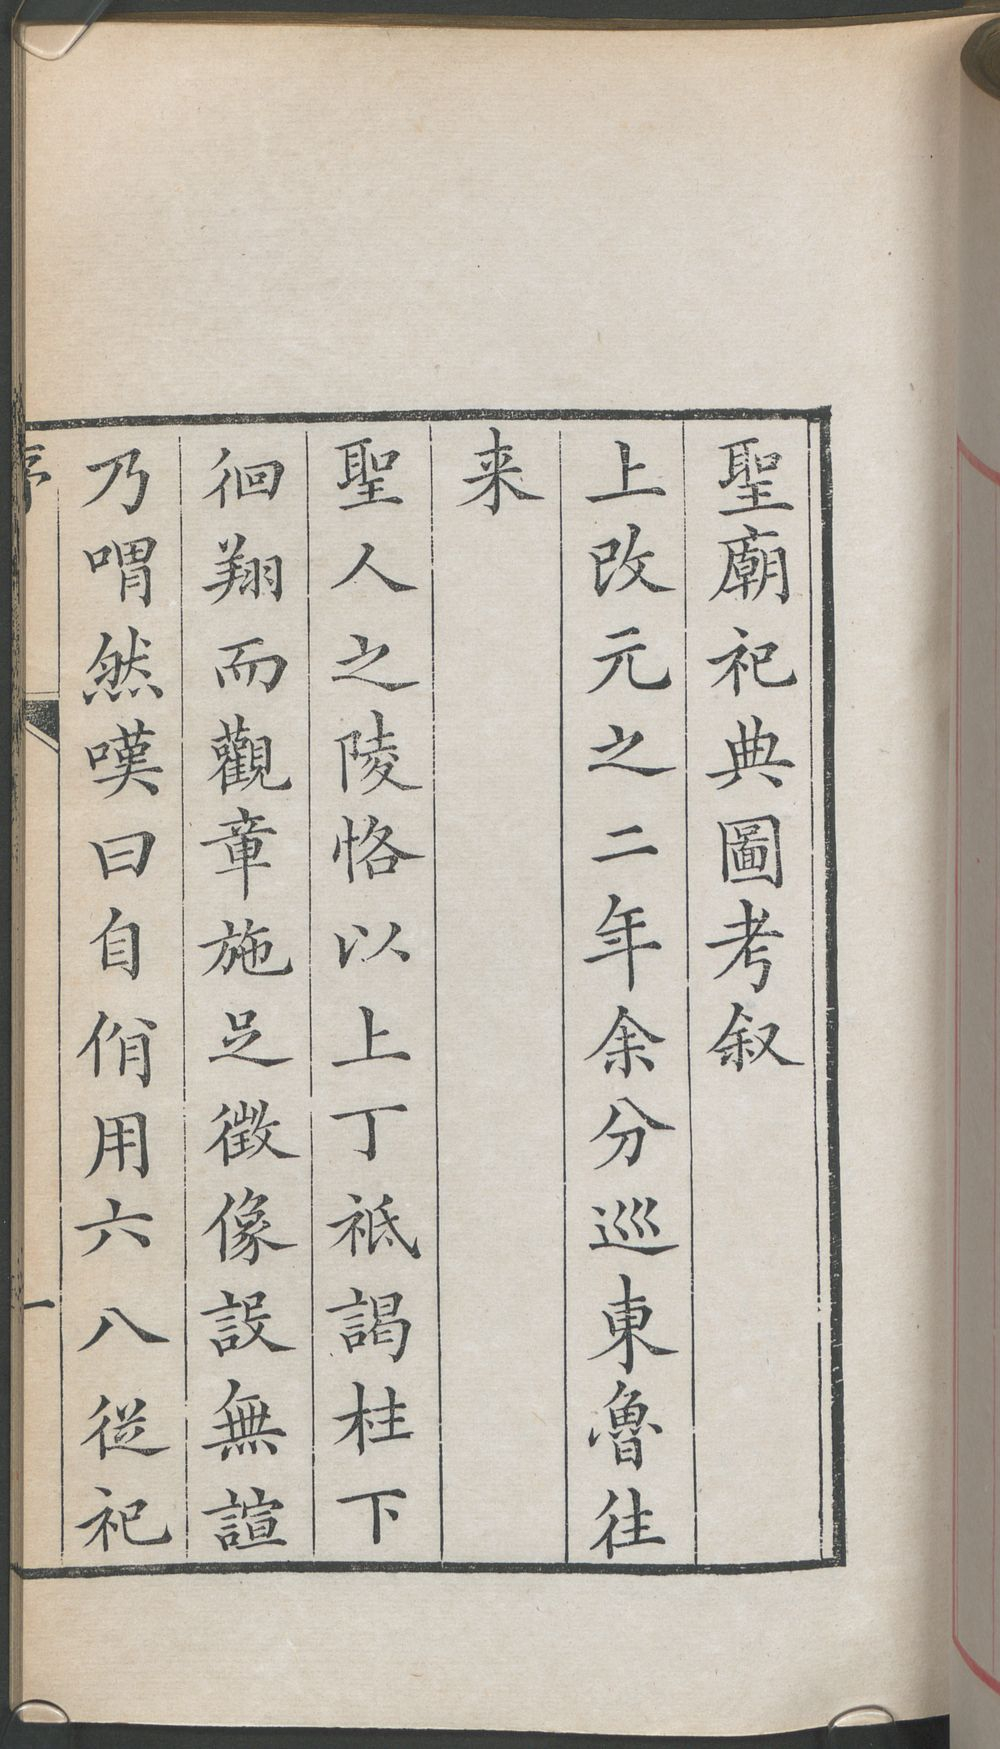 聖廟祀典圖考叙
上改元之二年余分巡東魯往
来
聖人之陵恪以上丁祗謁柱下
徊翔而觀章施足徵像設無諠
乃喟然嘆曰自佾用六八從祀
序
一